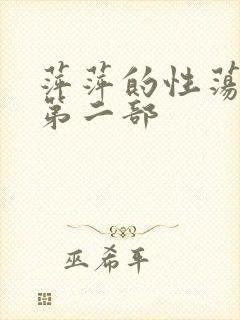 萍萍的性荡
第二部
巫希平